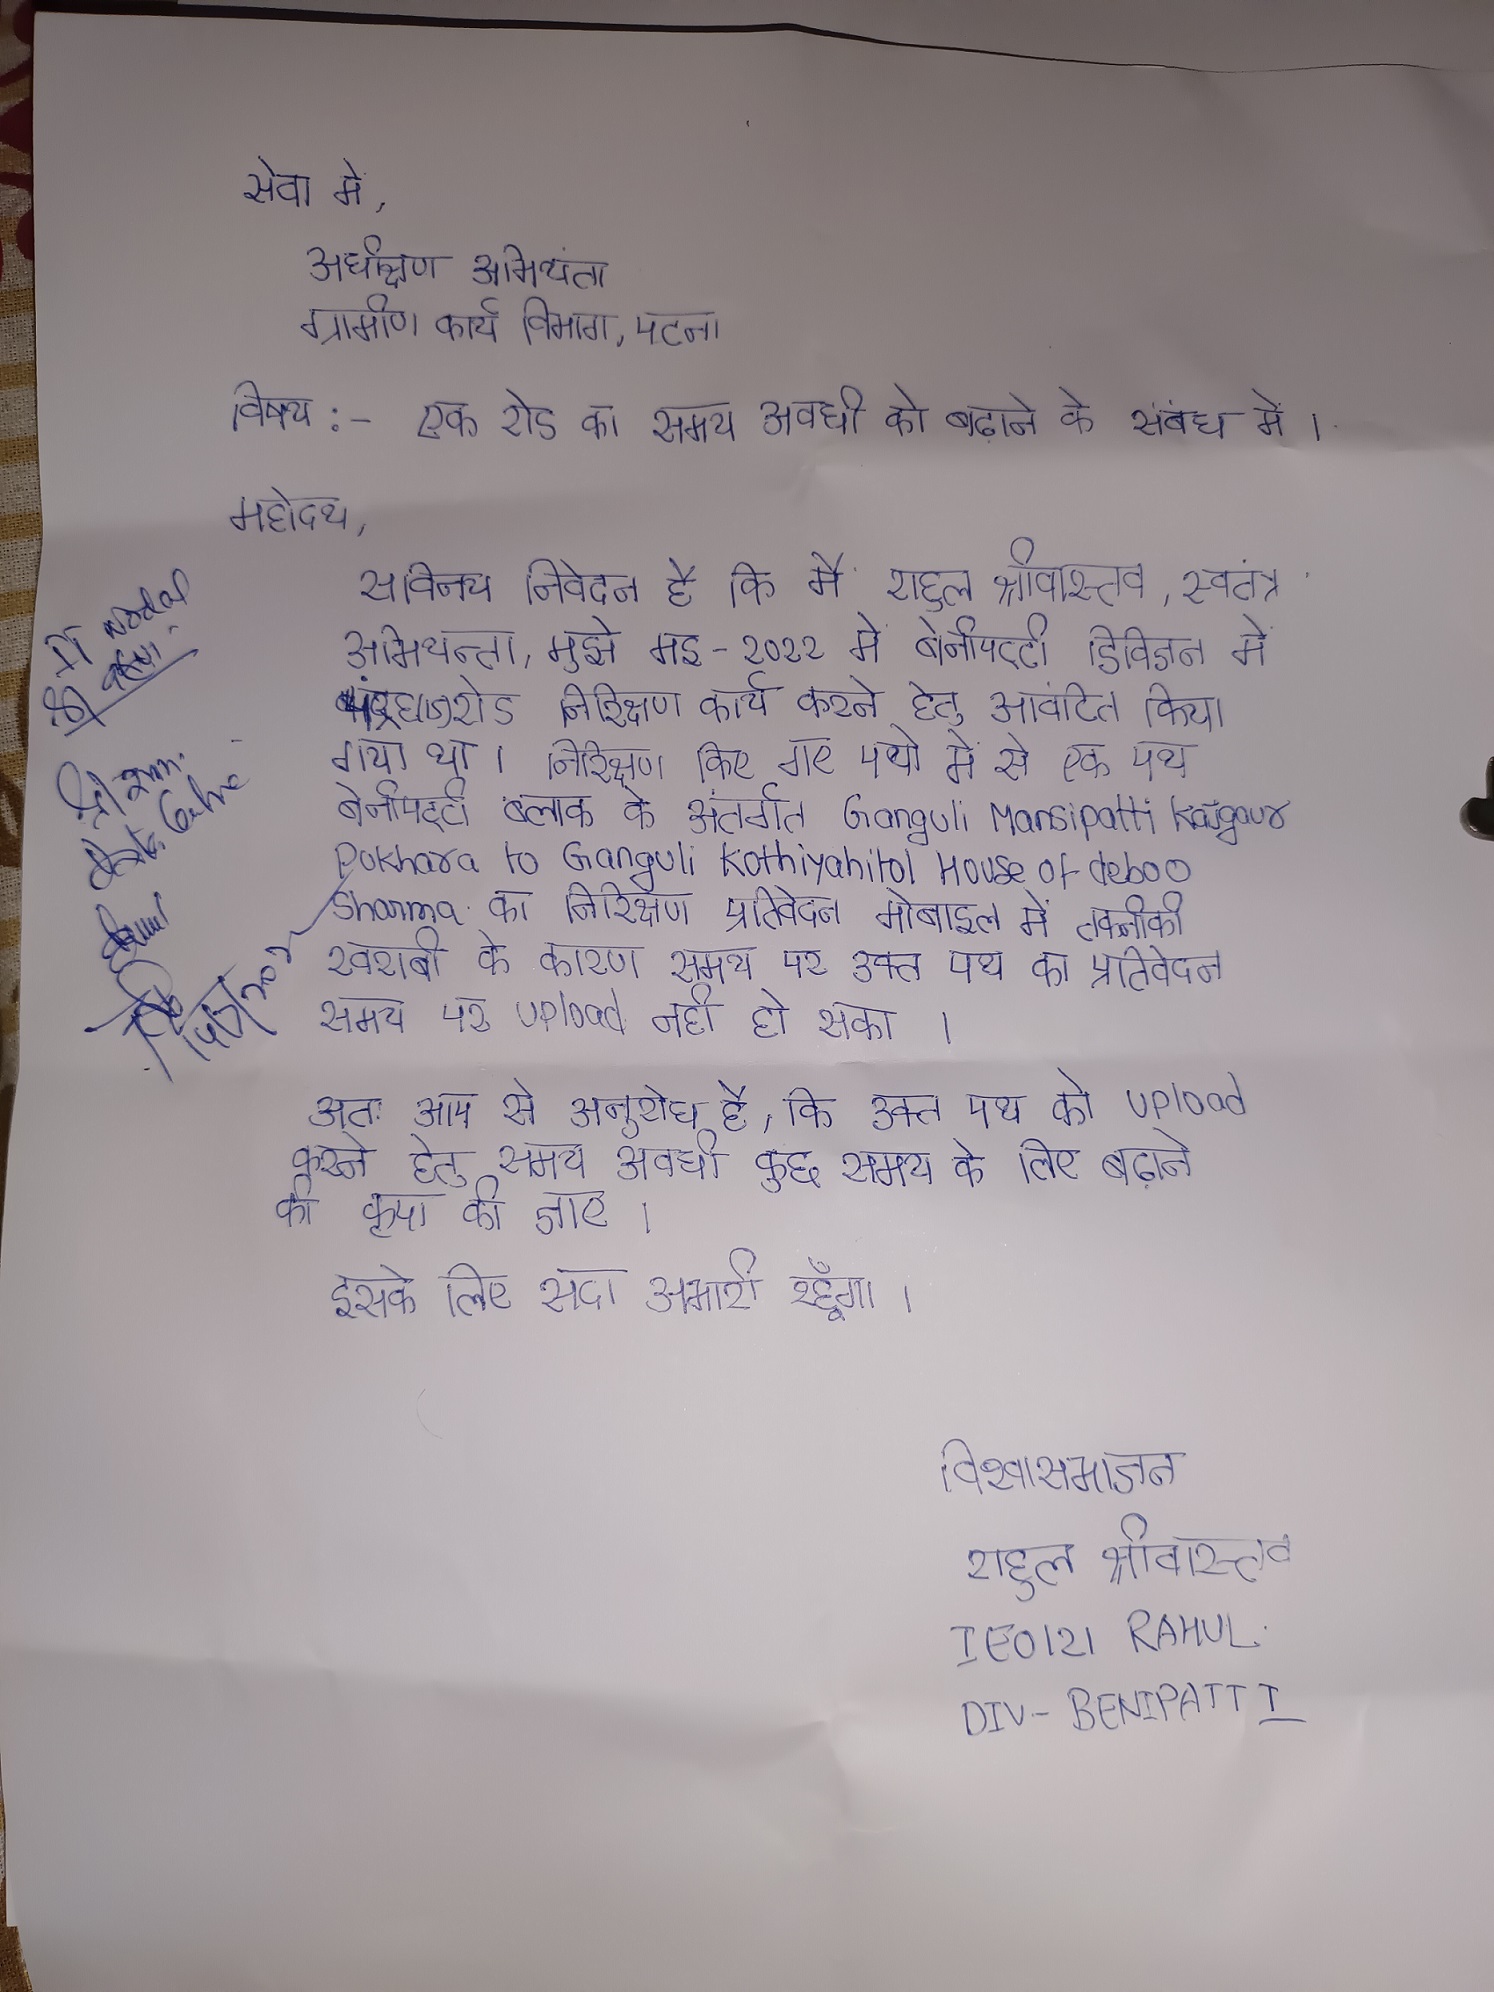 सेवा में,
अधीक्षण अभियंता
ग्रामीण कार्य विभाग, पटना
विषय :- एक रोड का समय अवधी को बढ़ाने के संबंध में ।
महोदय,
सविनय निवेदन है कि मैं राहुल श्रीवास्तव, स्वतंत्र
अभियन्ता, मुझे मइ - 2022 में बेनीपट्टी डिविजन में
रोड निरिक्षण कार्य करने हेतु आवंटित किया
गया था । निरिक्षण किए गए पथो में से एक पथ
बेनीपट्टी ब्लाक के अंतर्गत Ganguli Mansipatti Kajgour
Pokhara to Ganguli Kothiyahitol House of deboo
Sharma का निरिक्षण प्रतिवेदन मोबाइल में तकनीकी
खराबी के कारण समय पर उक्त पथ का प्रतिवेदन
समय पर upload नहीं हो सका ।
अतः आप से अनुरोध है, कि उक्त पथ को upload
करने हेतु समय अवधी कुछ समय के लिए बढ़ाने
की कृपा की जाए ।
इसके लिए सदा अभारी रहूँगा ।
विश्वासभाजन
राहुल श्रीवास्तव
IE0121 RAHUL
DIV - BENIPATTI